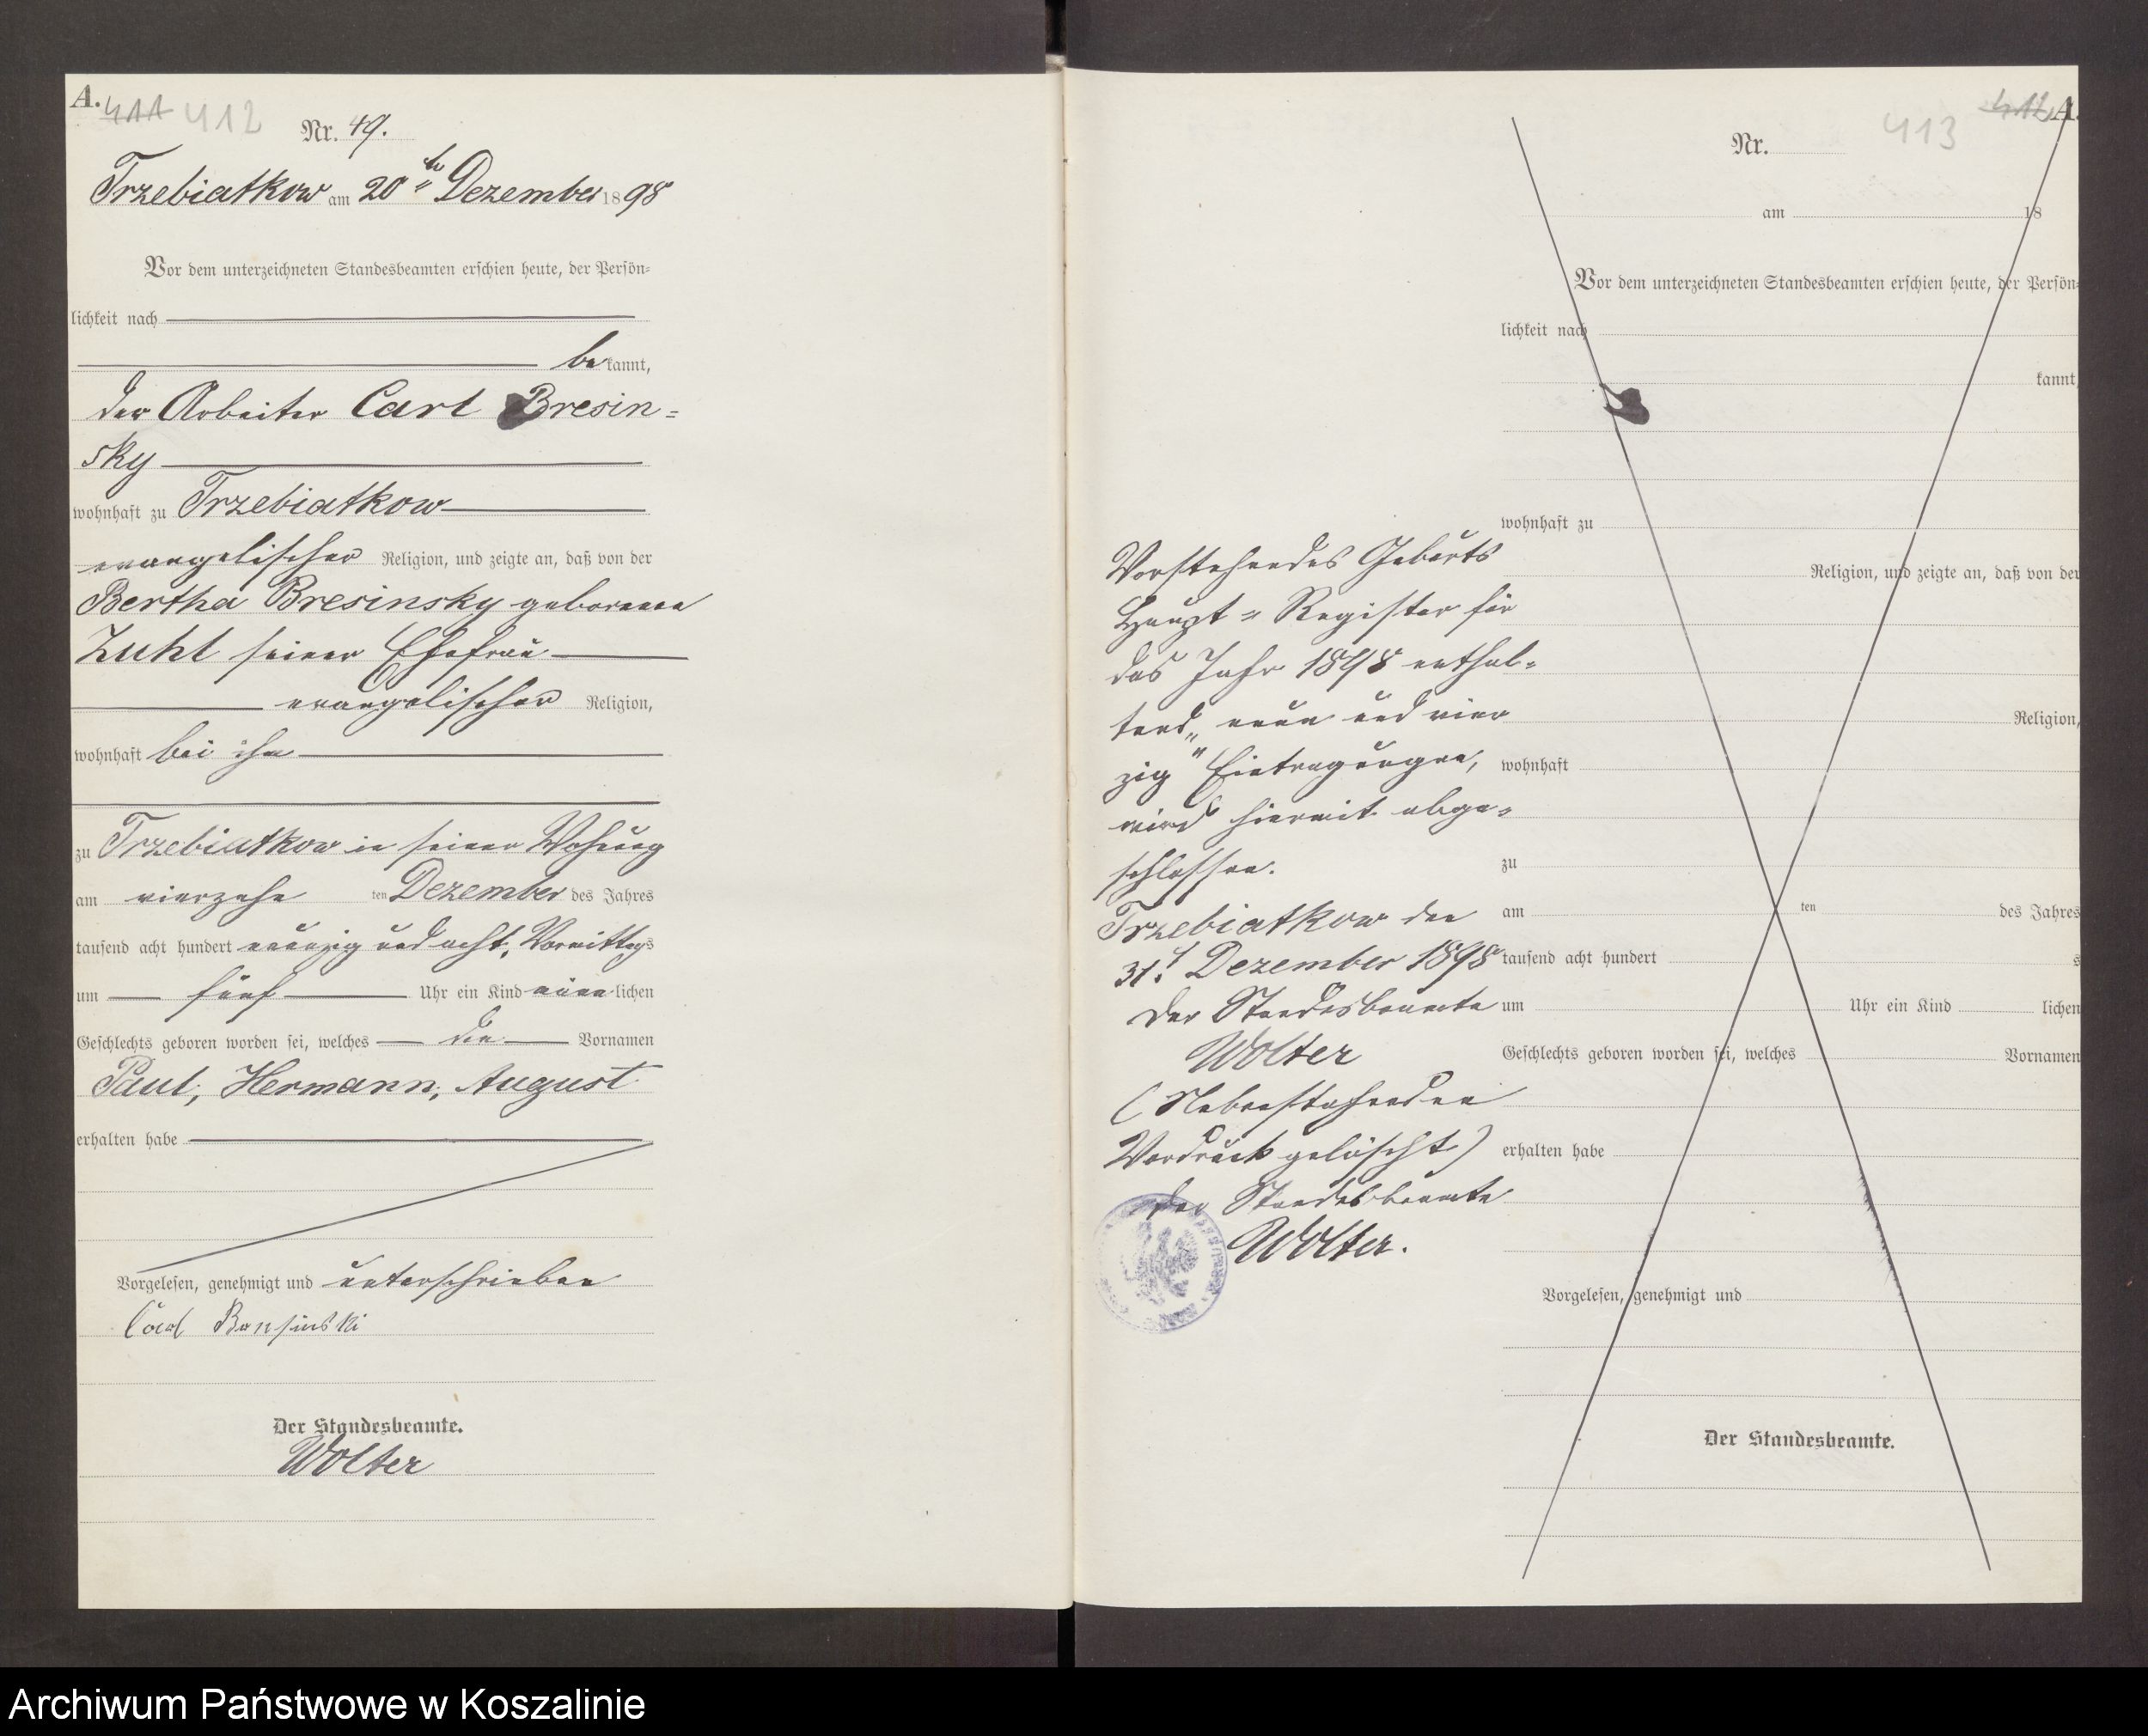 A.
411 412
Nr. 49.
Trzebiatkow am 20ten Dezember 1898
Vor dem unterzeichneten Standesbeamten erschien heute, der Persön-
lichkeit nach
bekannt,
der Arbeiter Carl Bresin-
sky
wohnhaft zu Trzebiatkow
evangelischer Religion, und zeigte an, daß von der
Bertha Bresinsky geborenen
Zuhl seiner Ehefrau
evangelischer Religion,
wohnhaft bei ihm
zu Trzebiatkow in seiner Wohnung
am vierzehn ten Dezember des Jahres
tausend acht hundert neunzig und acht, Vormittags
um fünf Uhr ein Kind männlichen
Geschlechts geboren worden sei, welches die Vornamen
Paul, Hermann, August
erhalten habe
Vorgelesen, genehmigt und unterschrieben
Carl
Der Standesbeamte.
Wolter
412 A.
413
Nr.
am 18
Vor dem unterzeichneten Standesbeamten erschien heute, der Persön-
lichkeit nach
kannt,
wohnhaft zu
Religion, und zeigte an, daß von der
Religion,
wohnhaft
zu
am ten des Jahres
tausend acht hundert s
um Uhr ein Kind lichen
Geschlechts geboren worden sei, welches Vornamen
erhalten habe
Vorgelesen, genehmigt und
Der Standesbeamte.
Vorstehendes Geburts
Haupt-Register für
das Jahr 1898 enthal-
tend „neun und vier
zig" Eintragungen,
wird hiermit abge-
schlossen.
Trzebiatkow den
31. Dezember 1898
Der Standesbeamte
Wolter
(Nebenstehenden
Vordruck gelöscht)
Der Standesbeamte
Wolter.
Archiwum Państwowe w Koszalinie